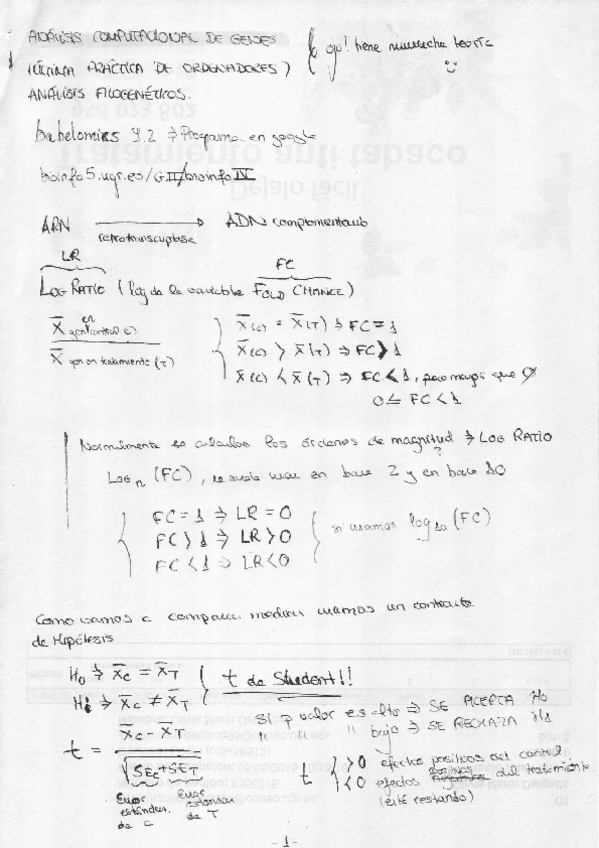 ANÁLISIS COMPUTACIONAL DE GENES
(ÚLTIMA PRÁCTICA DE ORDENADORES)
ANÁLISIS FILOGENÉTICOS.
ojo! tiene muuuucha teoría
Babelomics 4.2 → Programa en google
bioinfo5.ugr.es/GII/bioinfoIV
ARN → ADN complementario
retrotranscriptasa
LR FC
LOG RATIO (log de la variable FOLD CHANGE)
X̄ gen en control (C)
X̄ gen en tratamiento (T)
X̄(C) = X̄(T) ⇒ FC = 1
X̄(C) > X̄(T) ⇒ FC > 1
X̄(C) < X̄(T) ⇒ FC < 1, pero mayor que 0
0 ≤ FC < 1
Normalmente se calculan los órdenes de magnitud ⇒ LOG RATIO
?
LOG n (FC), se suele usar en base 2 y en base 10
FC = 1 ⇒ LR = 0
FC > 1 ⇒ LR > 0
FC < 1 ⇒ LR < 0
si usamos log10 (FC)
Como vamos a comparar medias usamos un contraste
de Hipótesis
H0 ⇒ X̄C = X̄T
H1 ⇒ X̄C ≠ X̄T
t de Student!!
si p valor es alto ⇒ SE ACEPTA H0
" " " bajo ⇒ SE RECHAZA H1
t = X̄C - X̄T / √SEC + SET
Error estándar de C
Error estándar de T
t > 0 efectos positivos del control
< 0 efectos positivos del tratamiento
(esté restando)
- 1 -
Tratamiento anti tabaco
Déjalo fácil